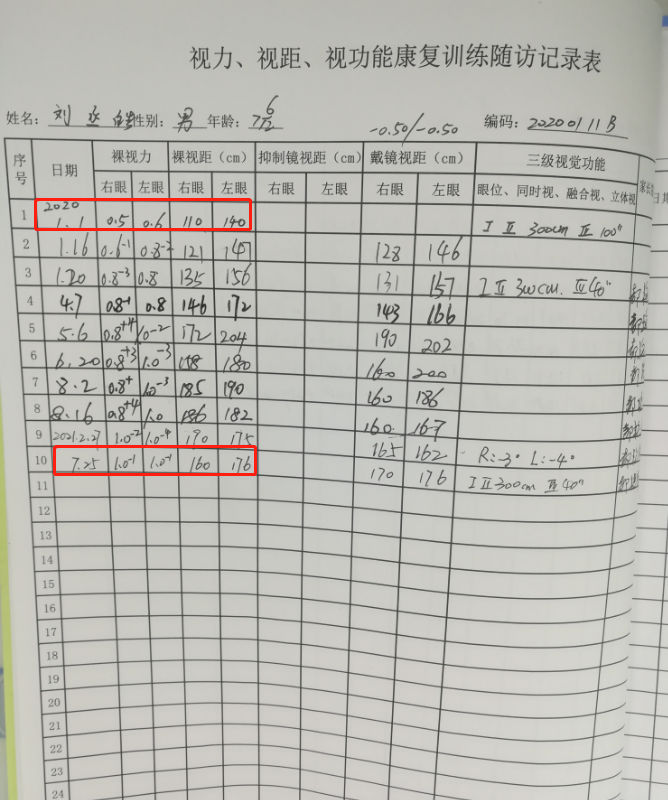 视力、视距、视功能康复训练随访记录表
姓名: 刘丞 性别: 男 年龄: 7 6/12 -0.50/-0.50 编码: 20200111B
序号 日期 裸视力 裸视距（cm） 抑制镜视距（cm） 戴镜视距（cm） 三级视觉功能
右眼 左眼 右眼 左眼 右眼 左眼 右眼 左眼 眼位、同时视、融合视、立体视 日期
1 2020 1.1 0.5 0.6 110 140 I II 300cm III 100"
2 1.16 0.6-1 0.8-2 121 147 128 146
3 1.20 0.8-3 0.8 135 156 131 157 I II 300cm. III 40"
4 4.7 0.8-1 0.8 146 172 143 166
5 5.6 0.8+4 1.0-2 172 204 190 202
6 6.20 0.8+3 1.0-3 180 160 200
7 8.2 0.8+ 1.0-3 185 190 160 186
8 8.16 0.8+4 1.0 186 182 160 167
9 2021.2.27 1.0-2 1.0-4 170 175 165 162 R:-3° L:-4°
10 7.25 1.0-1 1.0-1 160 176 170 176 I II 300cm III 40"
11
12
13
14
15
16
17
18
19
20
21
22
23
24